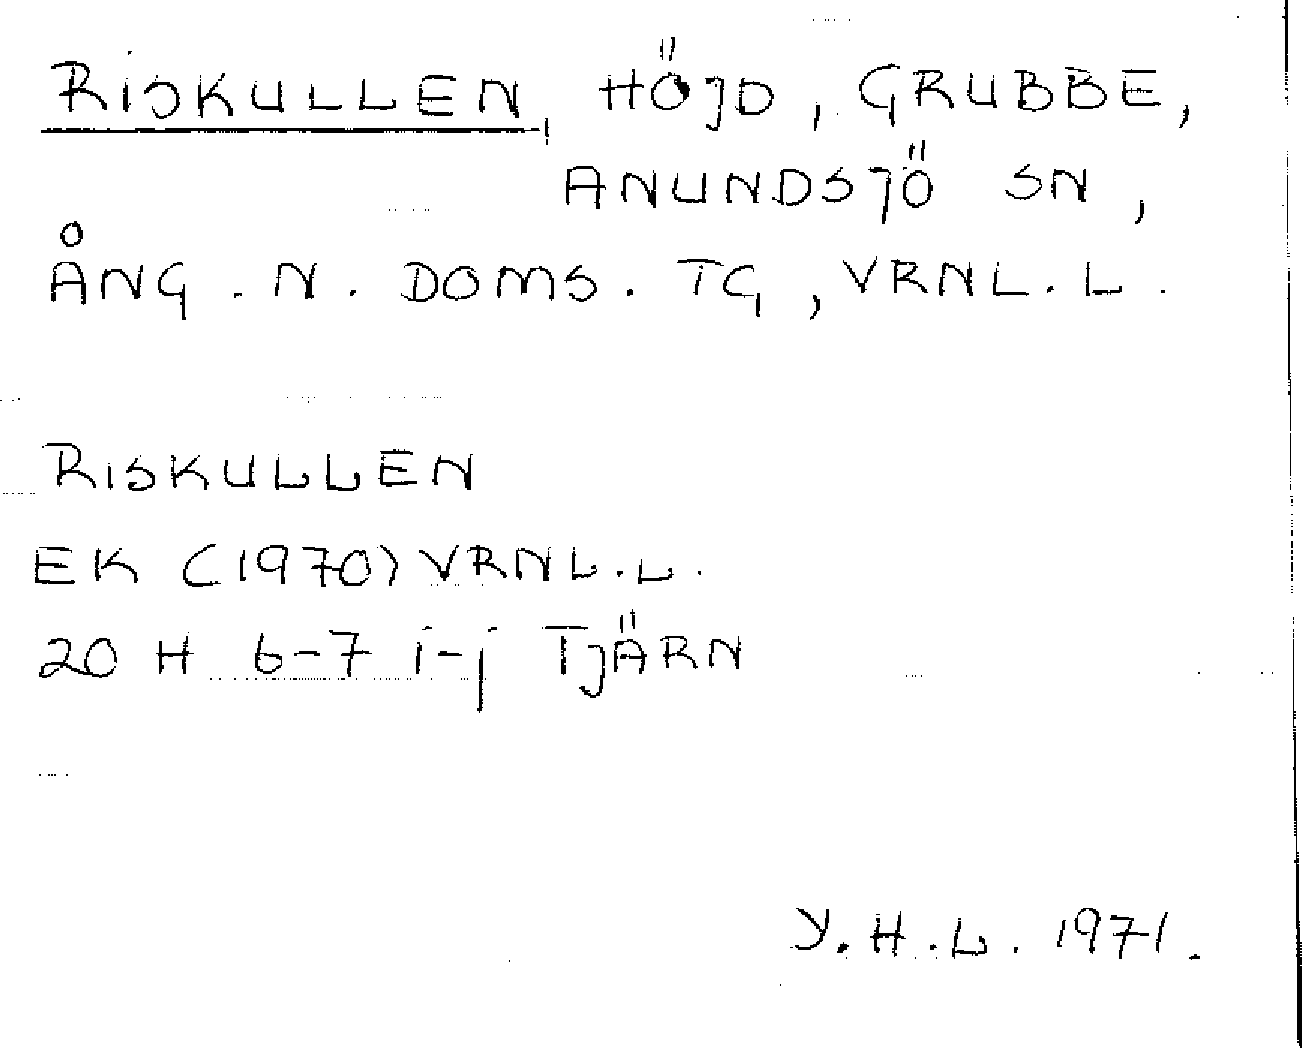 RISKULLEN, HÖJD, GRUBBE,
ANUNDSJÖ SN,
ÅNG. N. DOMS. TG, VRNL. L.
RISKULLEN
EK (1970) VRNL. L.
20 H 6-7 i-j TJÄRN
Y. H. L. 1971.